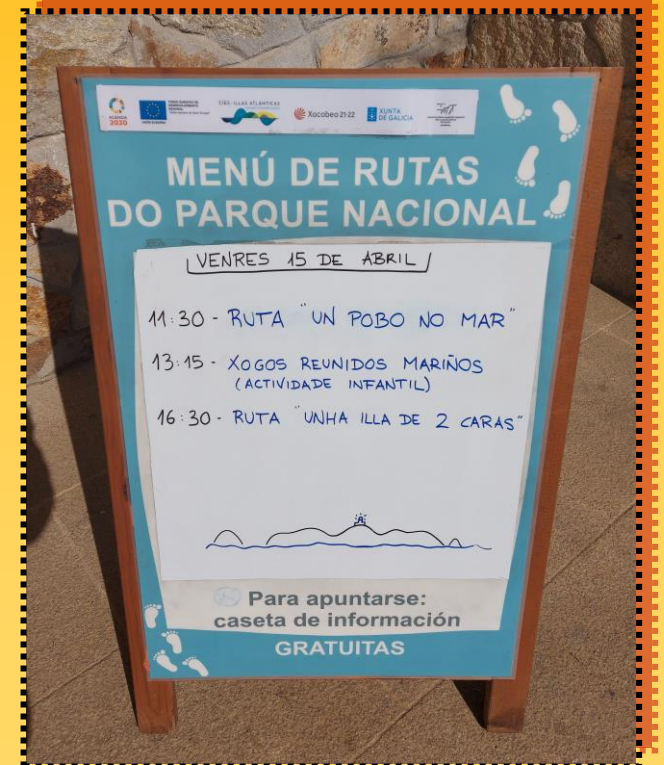 AGENDA
2030
UNIÓN EUROPEA
Xacobeo 21·22
XUNTA
DE GALICIA
MENÚ DE RUTAS
DO PARQUE NACIONAL
VENRES 15 DE ABRIL
11:30 - RUTA "UN POBO NO MAR"
13:15 - XOGOS REUNIDOS MARIÑOS
(ACTIVIDADE INFANTIL)
16:30 - RUTA "UNHA ILLA DE 2 CARAS"
Para apuntarse:
caseta de información
GRATUITAS